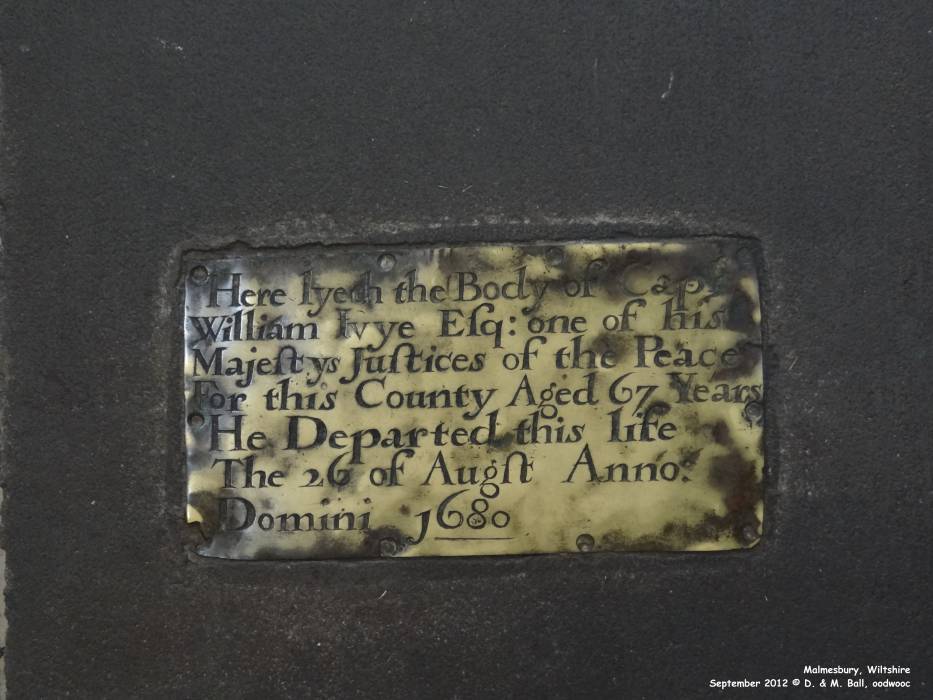 Here lyeth the Body of Capt
William Ivye Eſq: one of his
Majeſtys Juſtices of the Peace
For this County Aged 67 Years
He Departed this life
The 26 of Augſt Anno:
Domini 1680
Malmesbury, Wiltshire
September 2012 © D. & M. Ball, oodwooc